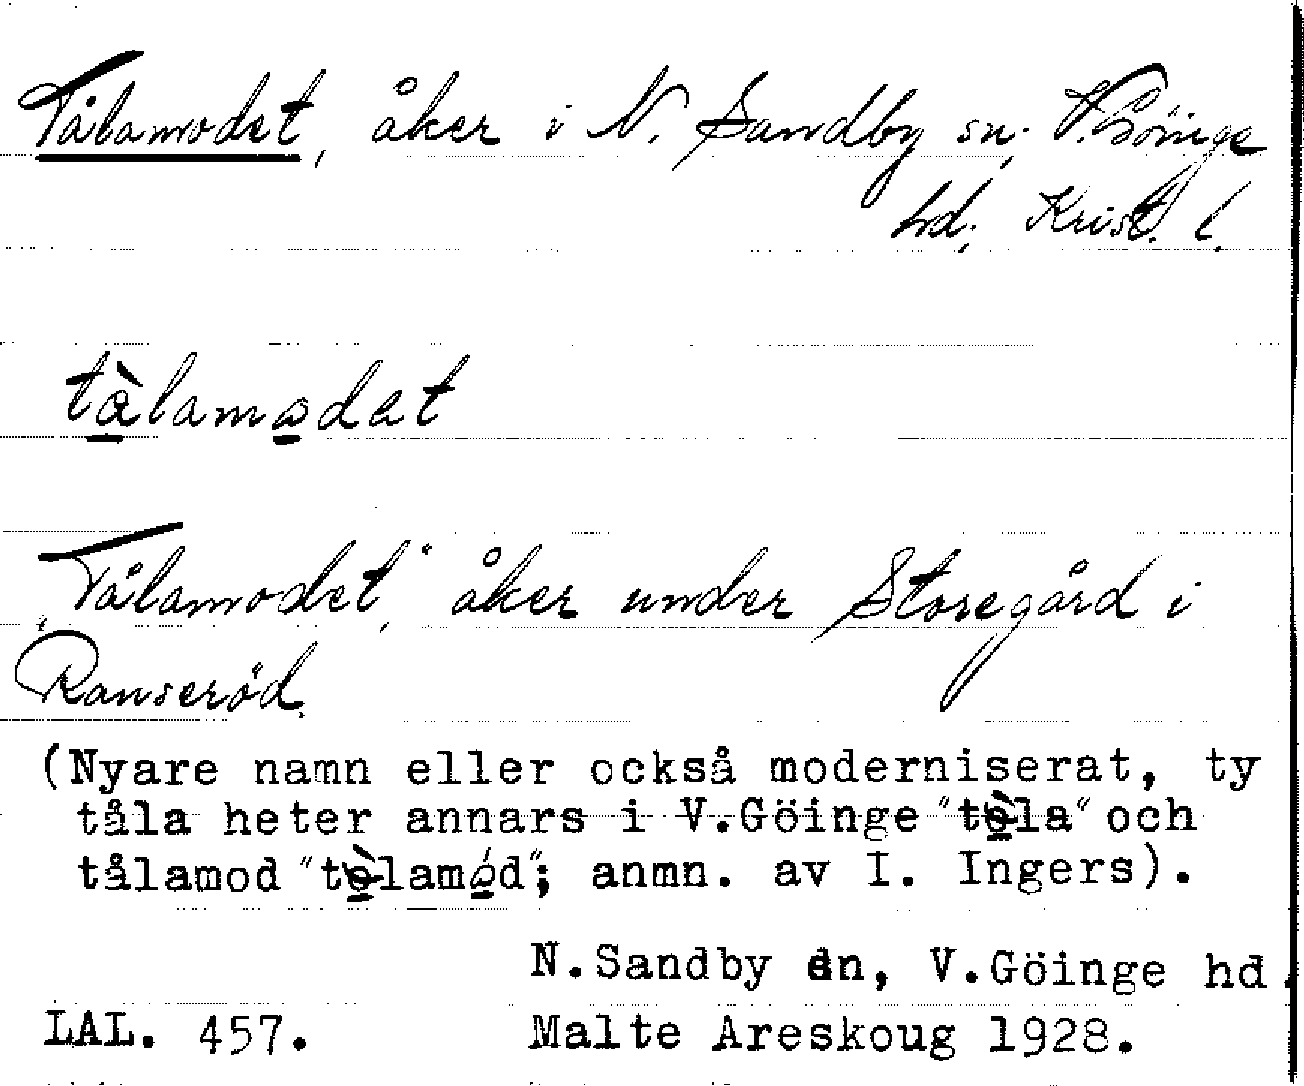 Tålamodet, åker i N. Sandby sn; V. Göinge
hd; Krist. l.
tålamodat
„Tålamodet,“ åker under Storegård i
Ranseröd.
(Nyare namn eller också moderniserat, ty
tåla heter annars i V.Göinge "tòla" och
tålamod "tòlamód"; anmn. av I. Ingers).
N.Sandby sn, V.Göinge hd.
LAL. 457. Malte Areskoug 1928.